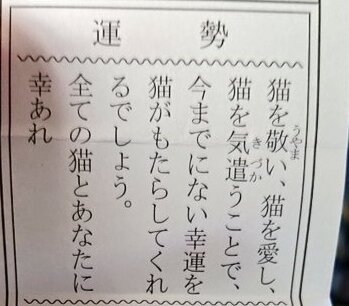 運勢
猫を敬い、猫を愛し、
猫を気遣うことで、
今までにない幸運を
猫がもたらしてくれ
るでしょう。
全ての猫とあなたに
幸あれ